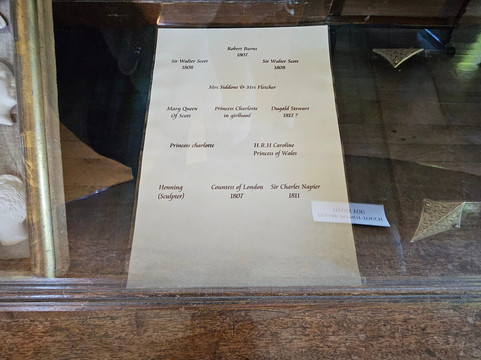 Robert Burns
1807
Sir Walter Scott Sir Walter Scott
1808 1808
Mrs Siddons & Mrs Fletcher
Mary Queen Princess Charlotte Dugald Stewart
Of Scots in girlhood 181? ?
Princess charlotte H.R.H Caroline
Princess of Wales
Henning Countess of London Sir Charles Napier
(Sculpter) 1807 1811